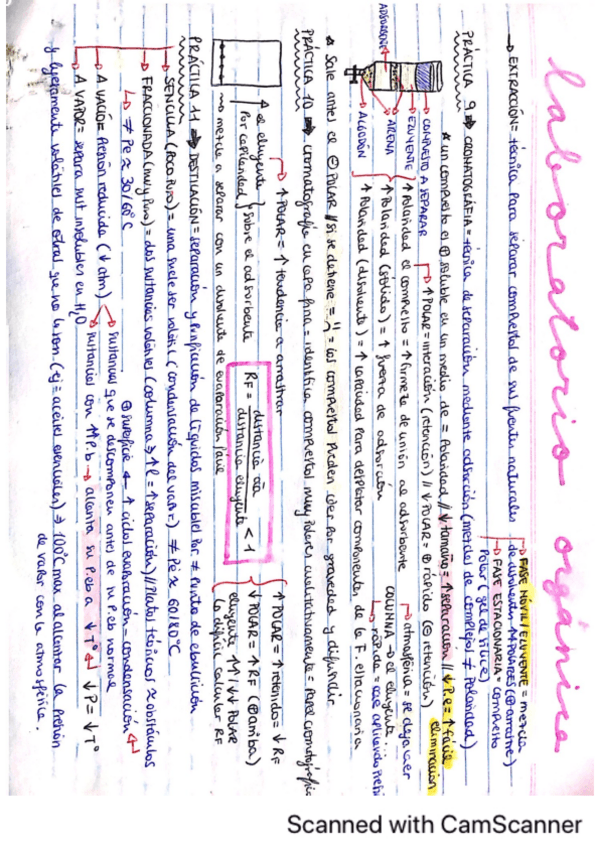 laboratorio orgánica
→ EXTRACCIÓN = técnica para separar compuestos de sus fuentes naturales
→ FASE MÓVIL/ELUYENTE = mezcla
de disolventes POLARES (⊕ arrastre)
→ FASE ESTACIONARIA = compuesto
Polar (gel de sílice)
PRÁCTICA 9 ⇒ CROMATOGRAFÍA = técnica de separación mediante adsorción (mezclas de complejos ≠ Polaridad)
* un compuesto es ⊕ soluble en un medio de = Polaridad // ↓ tamaño = ↑ separación // ↓ P.e = ↑ fácil
eliminación
→ COMPUESTO A SEPARAR
→ ELUYENTE
→ ARENA
→ ALGODÓN
ADSORBENTE
↑ POLAR = interacción (retención) // ↓ POLAR = ⊕ rápido (⊖ retención)
↑ Polaridad el compuesto = ↑ firmeza de unión al adsorbente
↑ Polaridad (sólido) = ↑ fuerza de adsorción
↑ Polaridad (disolvente) = ↑ capacidad para desplazar componentes de la F. estacionaria
COLUMNA → el eluyente...
→ atmosférica = se deja caer
→ rápida = cae aplicando
* Sale antes el ⊖ POLAR // si se detiene = los compuestos pueden caer por gravedad y difundir
PRÁCTICA 10 ⇒ cromatografía en capa fina = identifica compuestos muy polares cualitativamente = Papel cromatográfico
→ ↑ POLAR = ↑ tendencia a arrastrar
↑ el eluyente
Por capilaridad
sobre el adsorbente
→ mezcla a separar con un disolvente de evaporación fácil
RF = distancia / distancia eluyente < 1
↑ POLAR = ↑ retenido = ↓ RF
↓ POLAR = ↑ RF (⊕ arriba)
eluyente ↑↑ / ↓↓ POLAR
(⊖ difícil calcular RF
PRÁCTICA 11 ⇒ DESTILACIÓN = separación y purificación de líquidos miscibles por ≠ punto de ebullición
→ SENCILLA (poco puro) = una suele ser volátil (condensación del vapor) ≠ Pe ≈ 60/80°C
→ FRACCIONADA (muy puro) = dos sustancias volátiles (columna ⇒ ↑ l = ↑ separación) // Platos teóricos ≈ obstáculos
↳ ≠ Pe ≈ 30/60°C
⊕ superficie ← ↑ ciclos evaporación - condensación
→ A VACÍO = Presión reducida (↓ atm)
→ sustancias que se descomponen antes de su P.eb normal
→ sustancias con ↑↑ P.b → alcanza su P.eb a ↓ T° ↓ P = ↓ T°
→ A VAPOR = separa sust insolubles en H₂O
y ligeramente volátiles de otras que no lo son (ej = aceites esenciales) ⇒ 100°C max al alcanzar la Presión
de vapor con la atmosférica.
Scanned with CamScanner